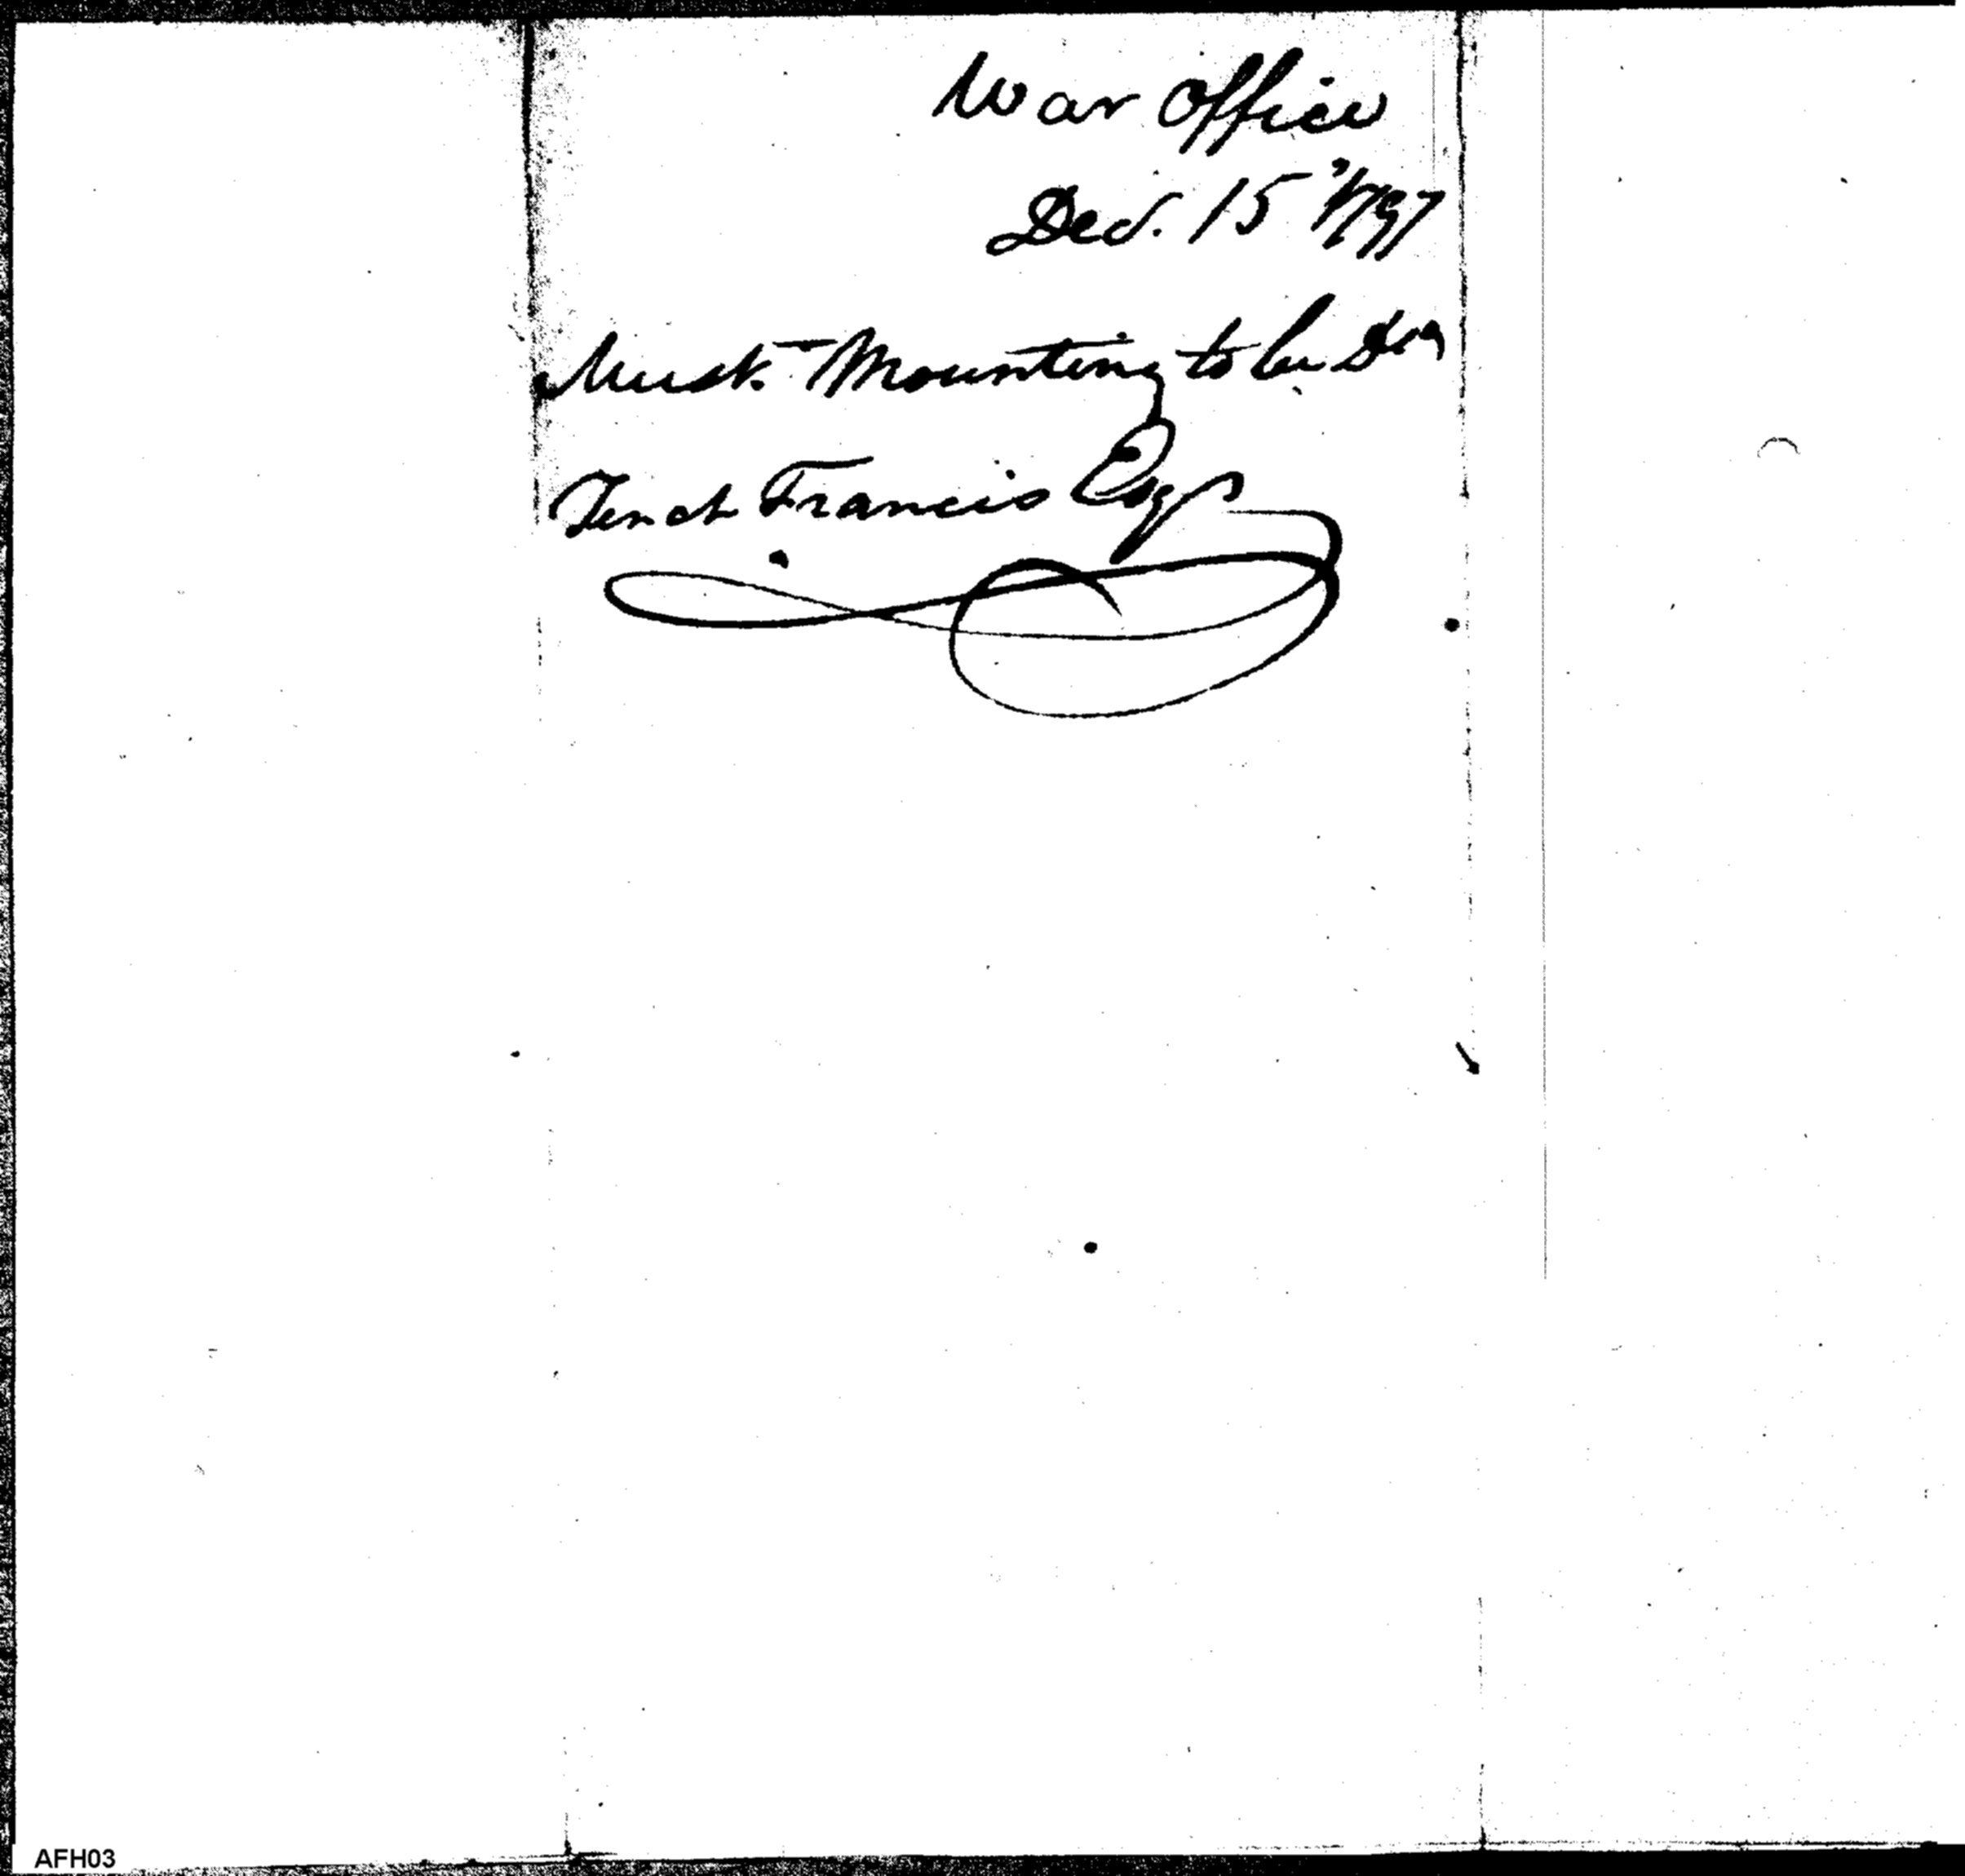 War Office
Dec. 15th 1797
Musk. Mounting to be
Tench Francis Esqr
AFH03